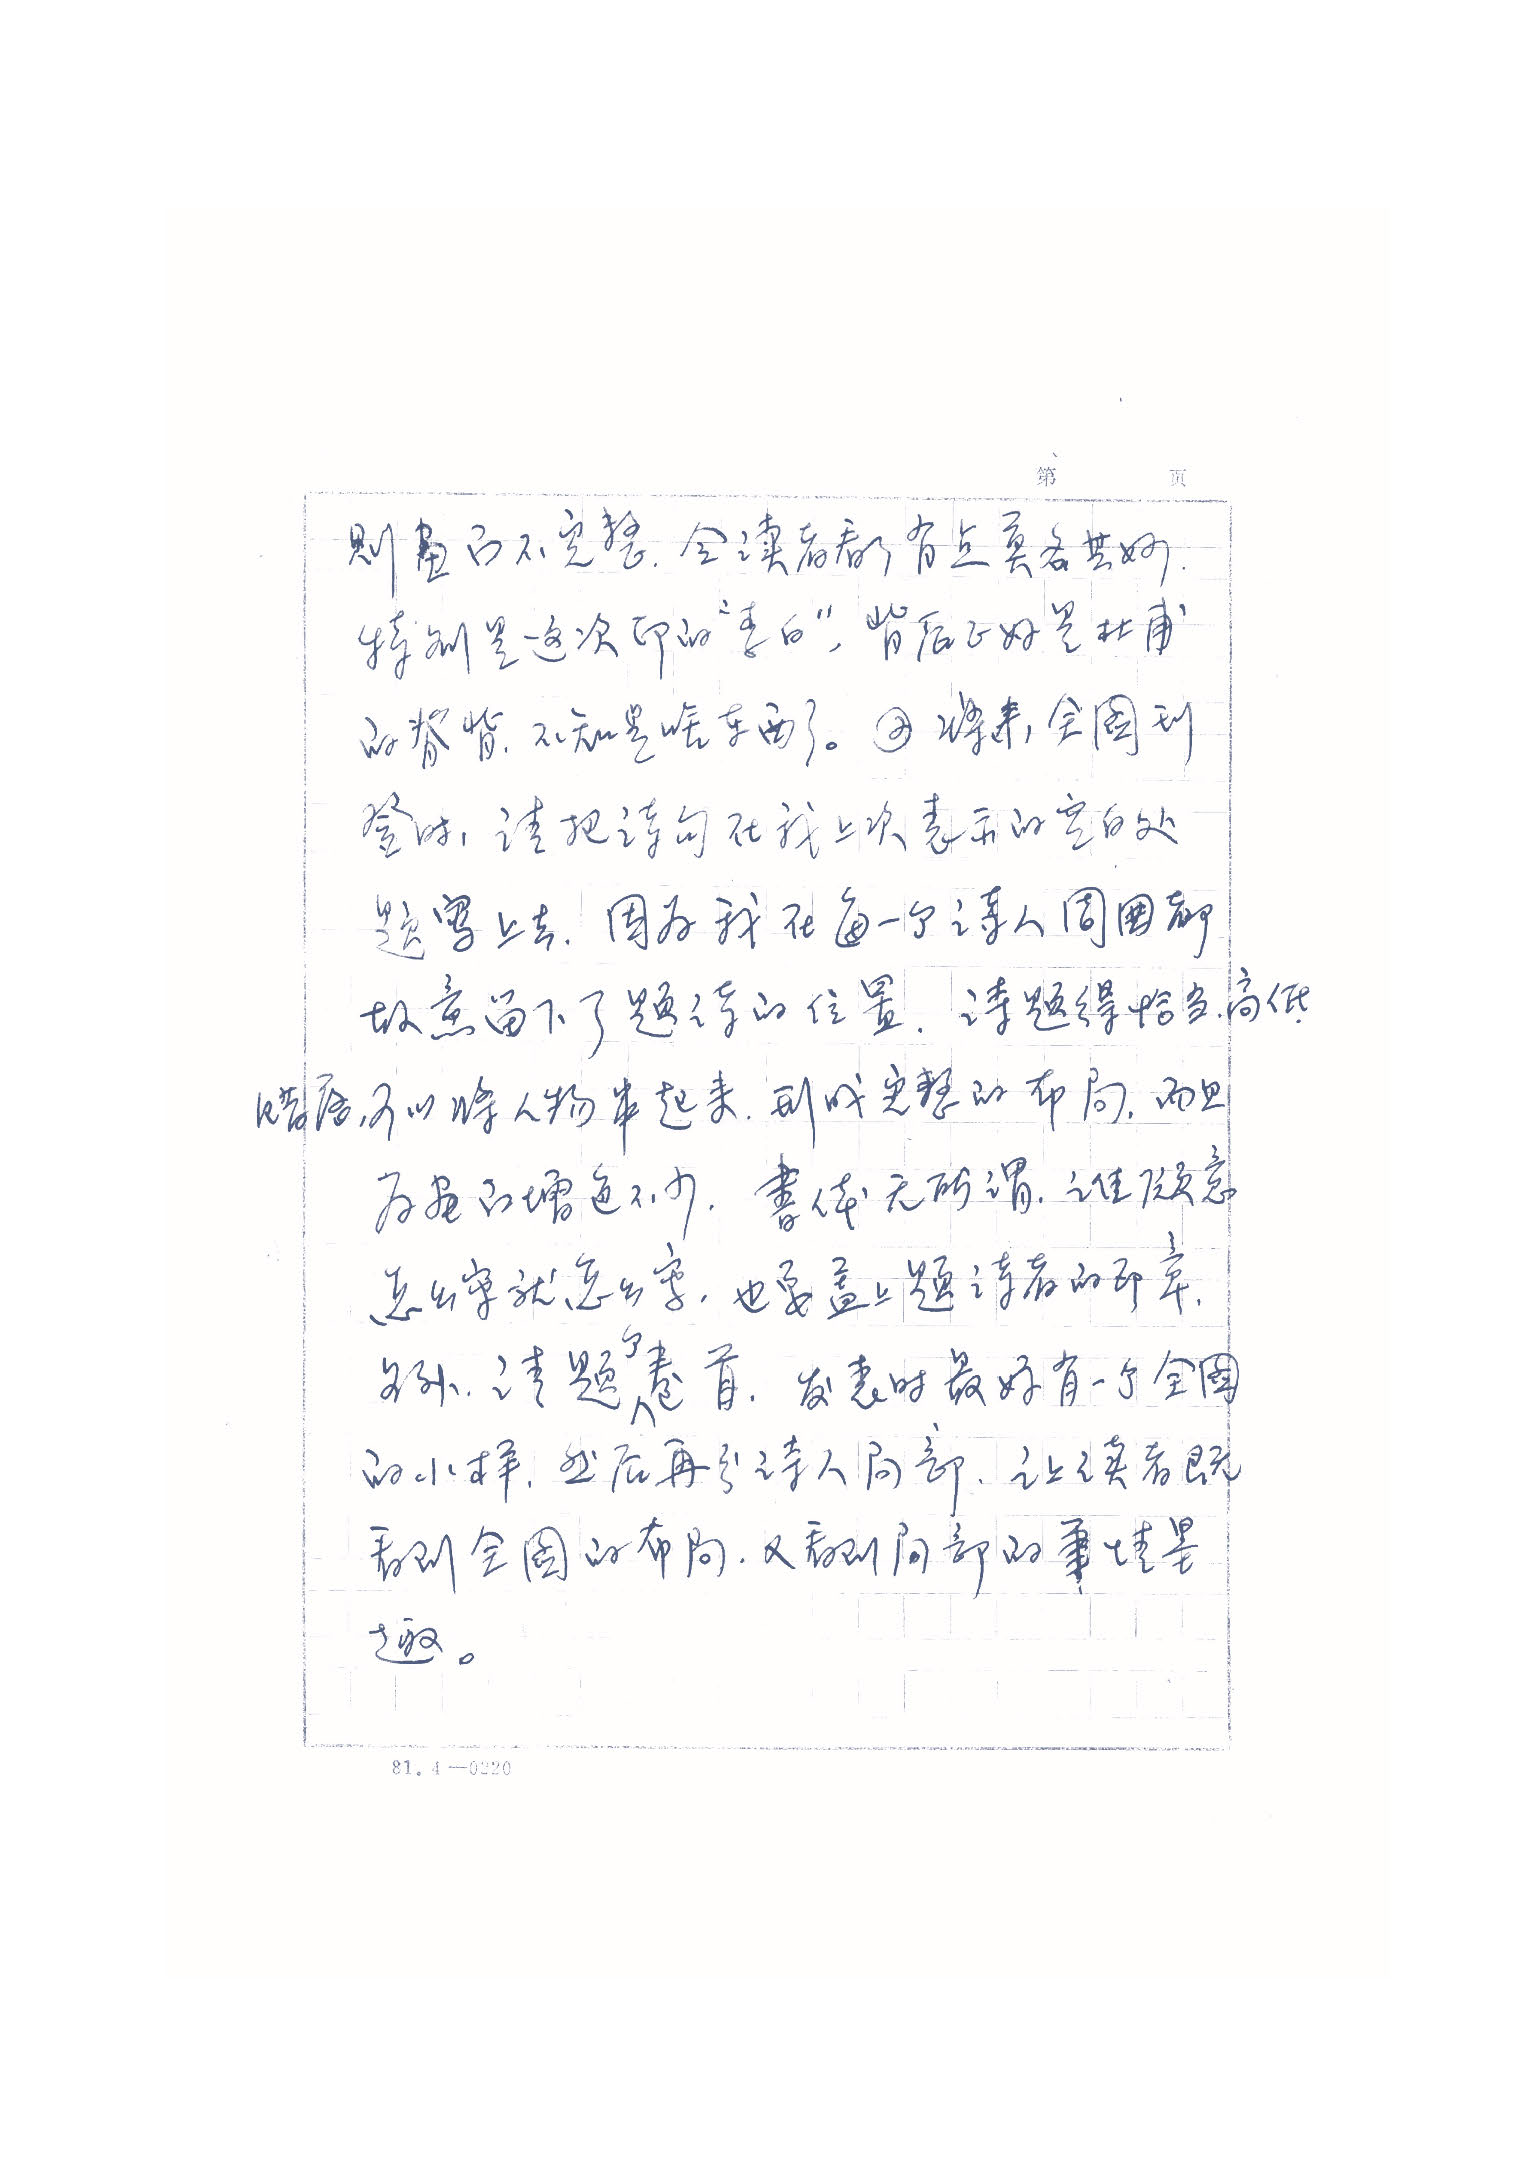 第 页
则画面不完整.令读者看了有点莫名其妙.
特别是这次印的"李白",背后正好是杜甫
的脊背.不知是啥东西了。④将来,全图刊
登时,请把诗句在我上次表示的空白处
题写上去.因为我在每一个诗人周围都
故意留下了题诗的位置.请题得恰当.高低
错落,可以将人物串起来.形成完整的布局.而且
为画面增色不少.书体无所谓.谁愿意
怎么写就怎么写.也要盖上题诗者的印章.
另外.请题个卷首.发表时最好有一个全图
的小样.然后再分诗人局部.让读者既
看到全图的布局.又看到局部的笔情墨
趣。
81.4—0220